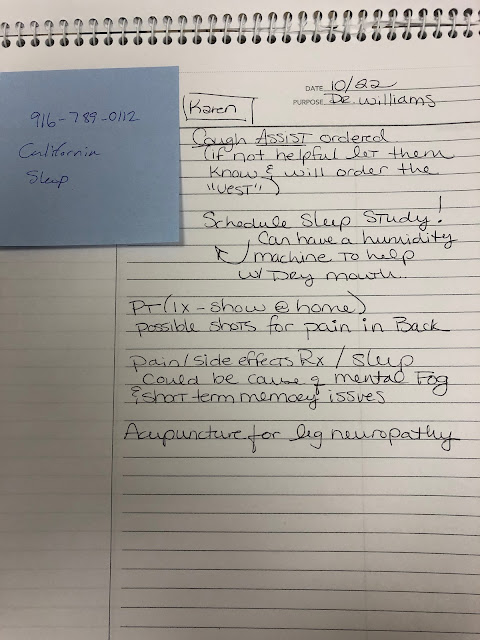 916-789-0112
California
Sleep
DATE 10/22
PURPOSE Dr. Williams
Karen
Cough Assist ordered
(if not helpful let them
know & will order the
"vest")
Schedule Sleep Study!
Can have a humidity
machine to help
w/ Dry mouth.
PT (1x - show @ home)
possible shots for pain in Back
pain/side effects Rx / sleep
could be cause of mental Fog
& short term memory issues
Acupuncture for leg neuropathy